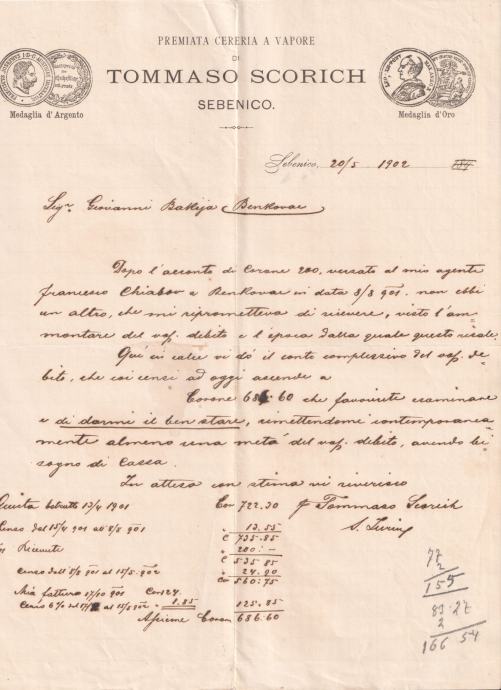 PREMIATA CERERIA A VAPORE
DI
TOMMASO SCORICH
SEBENICO.
Medaglia d'Argento
Medaglia d'Oro
Sebenico, 20/5 1902
Sigr. Giovanni Bakija Benkovac
Dopo l'acconto di Corone 200, versato al mio agente
Francesco Chiabov a Benkovac in data 8/8 901. non ebbi
un altro, che mi riprometteva di ricevere, visto l'am-
montare del vos. debito e l'epoca dalla quale questo risale.
Qui in calce vi dò il conto complessivo del vos. de-
bito, che coi censi ad oggi ascende a
Corone 686.60 che favorirete esaminare
e di darmi il benstare, rimettendomi contemporanea
mente almeno una metà del vos. debito, avendo bi
sogno di Cassa.
In attesa con stima vi riverisco
Giusta estratto 13/4 1901 Cor 722.30 p Tommaso Scorich
Censo dal 15/4 901 al 8/8 901 " 13.55
C 735.85
Ricevute " 200.-
C 535.85
Censo dall' 8/8 901 al 15/5 902 " 24.90
Cor 560.75
Mia fattura 17/10 901 Cor 124.
Censo 6% dal al 15/5 902 " 1.85 125.85
Assieme Corone 686.60
77
2
154
83.27
2
166 54